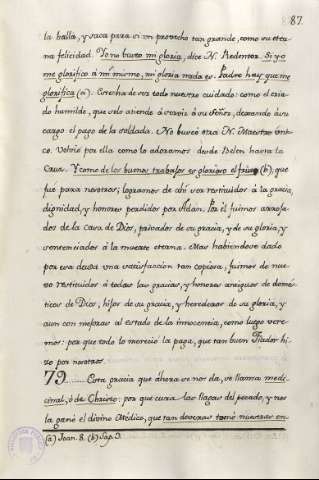 87.
la halla, y saca para sí un provecho tan grande, como su eter-
na felicidad. Yo no busco mi gloria, dice N. Redentor. Si yo
me glorifico á mí mismo, mi gloria nada es. Padre hay que me
glorifica (a). Este ha de ser todo nuestro cuidado: como el cria-
do humilde, que solo atiende á servir á su Señor, dexando á su
cargo el pago de la soldada. No buscó otra N. Maestro uni-
co. Volvió por ella como lo adoramos desde Belen hasta la
Cruz. Y como de los buenos trabajos es glorioso el fruto (b), que
fué para nosotros; logramos de ahí ser restituidos á la gracia,
dignidad, y honores perdidos por Adan. Por él fuimos arroja-
dos de la casa de Dios, privados de su gracia, y de su gloria, y
sentenciados á la muerte eterna. Mas habiendose dado
por esa deuda una satisfaccion tan copiosa, fuimos de nue-
vo restituidos á todas las gracias, y honores antiguos de domés-
ticos de Dios, hijos de su gracia, y herederos de su gloria, y
aun con mejoras al estado de la inocencia, como luego vere-
mos: por que todo lo mereció la paga, que tan buen Fiador hi-
zo por nosotros.
79. Esta gracia que ahora se nos da, se llama medi-
cinal, ó de Christo: por que cura las llagas del pecado, y nos
la ganó el divino Médico, que tan deveras tomó nuestras en-
(a) Joan. 8. (b) Sap. 3.